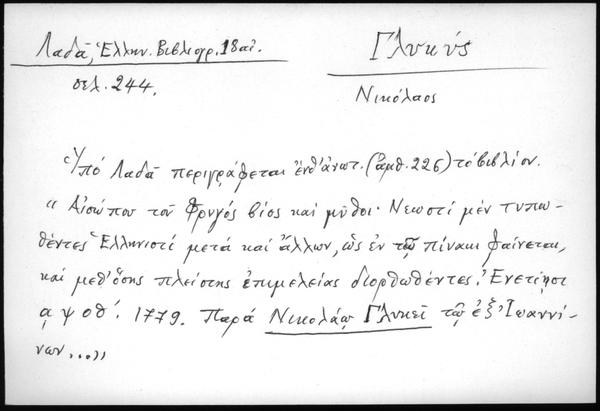 Λαδᾶ, Ἑλλην. Βιβλιογρ. 18αἰ.
Γλυκύς
σελ. 244.
Νικόλαος
Ὑπό Λαδᾶ περιγράφεται ἐνθ' ἀνωτ. (ἀριθ. 226) τό βιβλίον.
« Αἰσώπου τοῦ Φρυγός βίος καί μῦθοι· Νεωστί μέν τυπω-
θέντες Ἑλληνιστί μετά καί ἄλλων, ὡς ἐν τῷ πίνακι φαίνεται,
καί μεθ' ὅσης πλείστης ἐπιμελείας διορθωθέντες. Ἐνετίησι
αψοθ'. 1779. Παρά Νικολάῳ Γλυκεῖ τῷ ἐξ Ἰωαννί-
νων...»